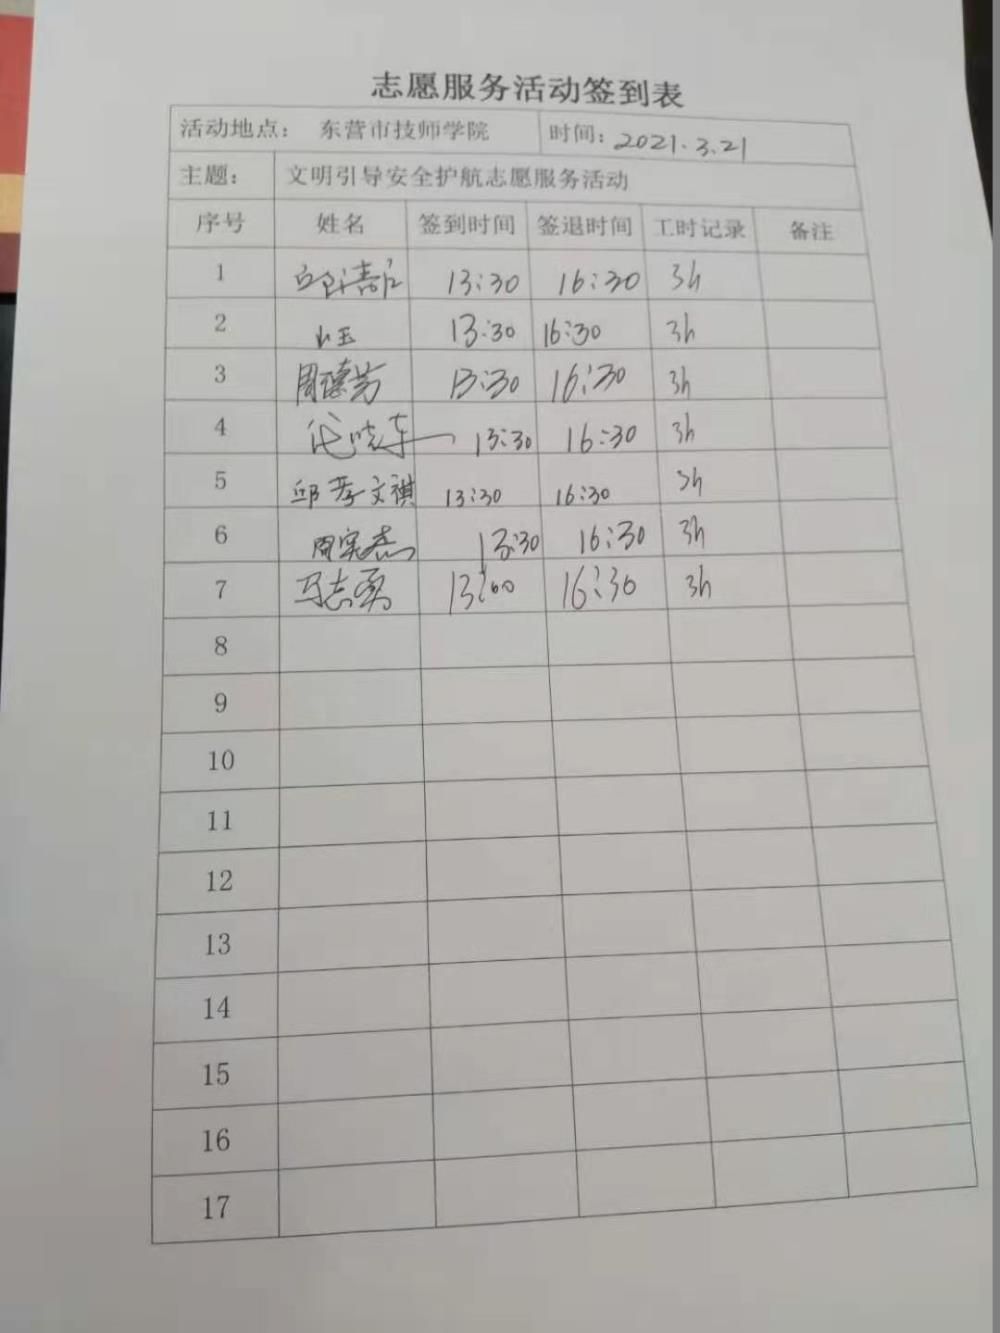 志愿服务活动签到表
活动地点： 东营市技师学院 时间：2021.3.21
主题： 文明引导安全护航志愿服务活动
序号 姓名 签到时间 签退时间 工时记录 备注
1 13:30 16:30 3h
2 13:30 16:30 3h
3 周德芳 13:30 16:30 3h
4 13:30 16:30 3h
5 邱 文祺 13:30 16:30 3h
6 13:30 16:30 3h
7 马志勇 13:00 16:30 3h
8
9
10
11
12
13
14
15
16
17